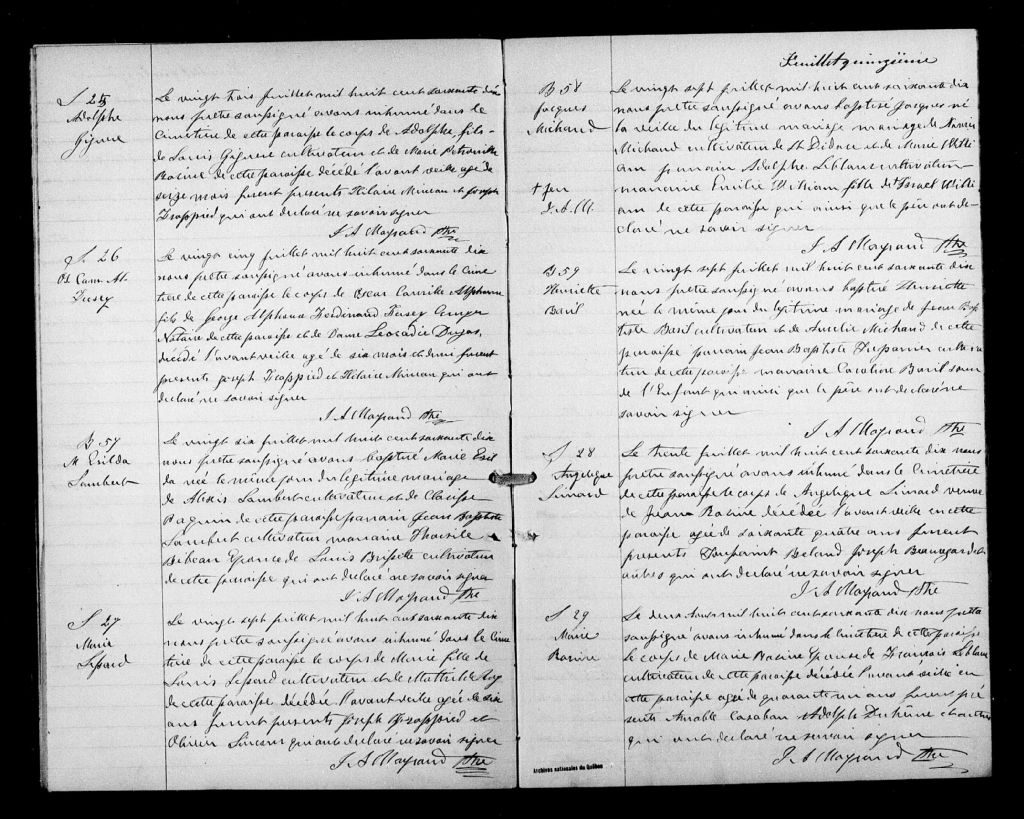 S 25
Adolphe
Gignere
Le vingt trois juillet mil huit cent soixante dix
nous prêtre soussigné avons inhumé dans le
Cimetière de cette paroisse le corps de Adolphe fils
de Louis cultivateur et de Marie Petronille
Racine de cette paroisse décédé l'avant veille agé de
seize mois furent presents Hilaire Mineau et Joseph
Frappied qui ont declaré ne savoir signer
J A Mayrand Ptre
S. 26
Os Cam Al
Le vingt cinq juillet mil huit cent soixante dix
nous prêtre soussigné avons inhumé dans le Cime
tière de cette paroisse le corps de Oscar Camille Alphonse
fils de George Alphonse Ferdinand
Notaire de cette paroisse et de Dame Leocadie Dugas,
décédé l'avant veille agé de six mois et demi furent
presents Joseph Frappied et Hilaire Mineau qui ont
declaré ne savoir signer
J A Mayrand Ptre
B 57
M Exilda
Lambert
Le vingt six juillet mil huit cent soixante dix
nous prêtre soussigné avons baptisé Marie Exil
da née le même jour du légitime mariage
de Alexis Lambert cultivateur et de Clarisse
Paquin de cette paroisse parrain Jean Baptiste
Lambert cultivateur marraine Tharsile
Bibeau Epouse de Louis Brissette cultivateur
de cette paroisse qui ont declaré ne savoir signer
J. A Mayrand Ptre
S 27
Marie
Lesard
Le vingt sept juillet mil huit cent soixante dix
nous prêtre soussigné avons inhumé dans le Cime
tière de cette paroisse le corps de Marie fille de
Louis Lesard cultivateur et de Mathilde
de cette paroisse décédée l'avant veille agée de six
ans furent presents Joseph Frappied et
Olivier qui ont declaré ne savoir signer
J. A Mayrand Ptre
Feuillet quinzième
B 58
Jacques
Michaud
+ jeu
J. A. M.
Le vingt sept juillet mil huit cent soixante dix
nous prêtre soussigné avons baptisé Jacques né
la veille du légitime mariage mariage de Narcisse
Michaud cultivateur de St Didace et de Marie Willi
am parrain Adolphe Leblanc cultivateur
marraine Emilie William fille de Israel Willi
am de cette paroisse qui ainsi que le père ont de-
claré ne savoir signer
J. A Mayrand Ptre
B 59
Henriette
Baril
Le vingt sept juillet mil huit cent soixante dix
nous prêtre soussigné avons baptisé Henriette
née le même jour du légitime mariage de Jean Bap
tiste Baril cultivateur et de Amelie Michaud de cette
paroisse parrain Jean Baptiste Trepanier cultiva
teur de cette paroisse marraine Caroline Baril soeur
de l'Enfant qui ainsi que le père ont declaré ne
savoir signer
J A Mayrand Ptre
S 28
Angelique
Simard
Le trente juillet mil huit cent soixante dix nous
prêtre soussigné avons inhumé dans le Cimetière
de cette paroisse le corps de Angelique Simard veuve
de Jean Racine décédée l'avant veille en cette
paroisse agée de soixante quatre ans furent
presents Toussaint Beland Joseph Beauregard et
autres qui ont declaré ne savoir signer
J. A Mayrand Ptre
S 29
Marie
Racine
Le deux Aout mil huit cent soixante dix nous prêtre
soussigné avons inhumé dans le Cimetière de cette paroisse
le corps de Marie Racine Epouse de Francois Leblanc
cultivateur de cette paroisse décédée l'avant veille en
cette paroisse agée de quarante un ans furent pré
sents Amable Casaban Adolphe Duchêne et autres
qui ont declaré ne savoir signer
J. A Mayrand Ptre
Archives nationales du Québec